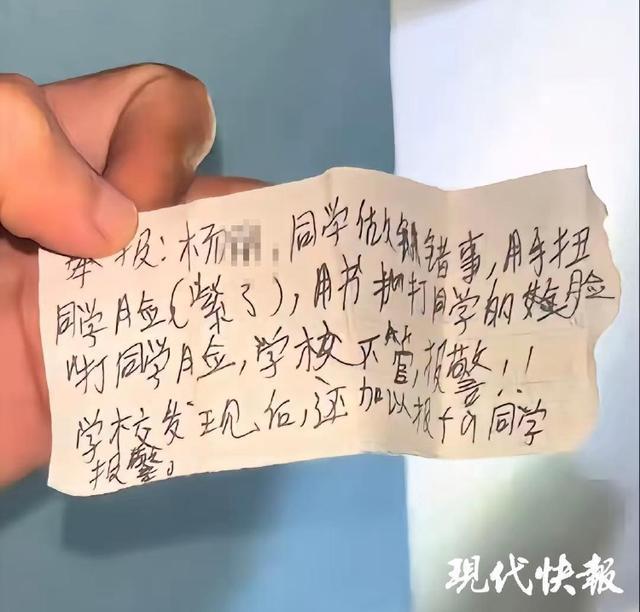 举报:杨 同学做错事,用手扭
同学脸(紫了),用书抽打同学的脸
打同学脸,学校不管,报警!!
学校发现后,还加以报 同学
报警。
现代快報